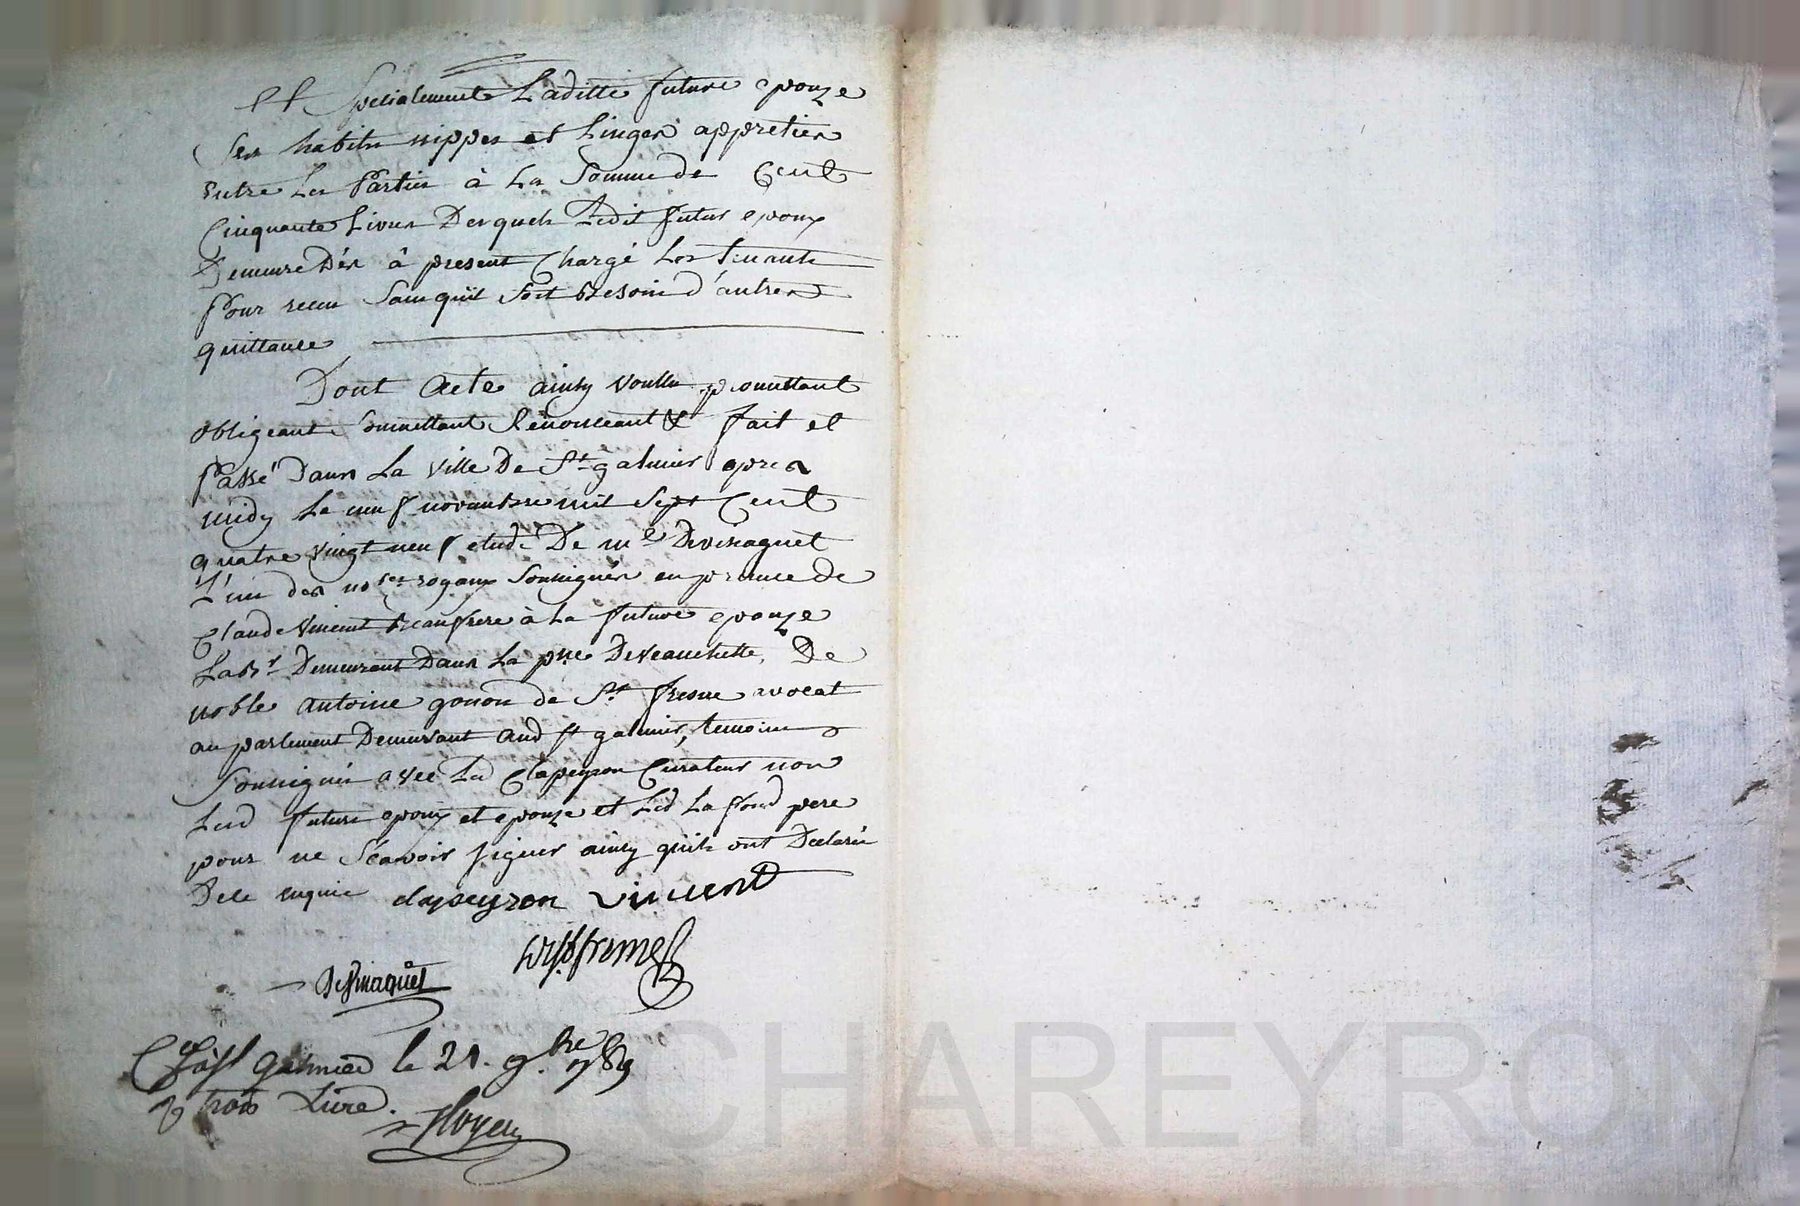 Et specialement Laditte future epouze
ses habits nippes et Linges appretiés
entre Les Parties à La Somme de Cent
Cinquante Livres Desquels Ledit futur epoux
Demeure Dés à present Chargé Les tenants
Pour receu Sans quil soit besoin d'autres
quittance
Dont Acte ainsy voullu promettant
obligeant Soumettant Renonceant &c fait et
Passé Dans La ville De St galmier apres
midy Le neuf novembre mil Sept Cent
quatre vingt neuf etude De me Devinaquet
L'un des nores royaux Soussignés en presence de
Claude Vincent beaufrere à La future epouze
Labr Demeurant Dans La psse De veauchette, De
noble antoine gonon de St fresne avocat
au parlement Demeurant aud St galmier, temoins
Soussignés avec Led Clapeyron Curateur non
Lesd futurs epoux et epouze et Led La fond pere
pour ne Sçavoir signer ainsy quils ont Declarés
De ce enquis clapeyron vincent
Devinaquet
Cé à St Galmier le 21. 9bre 1789
trois Livre.